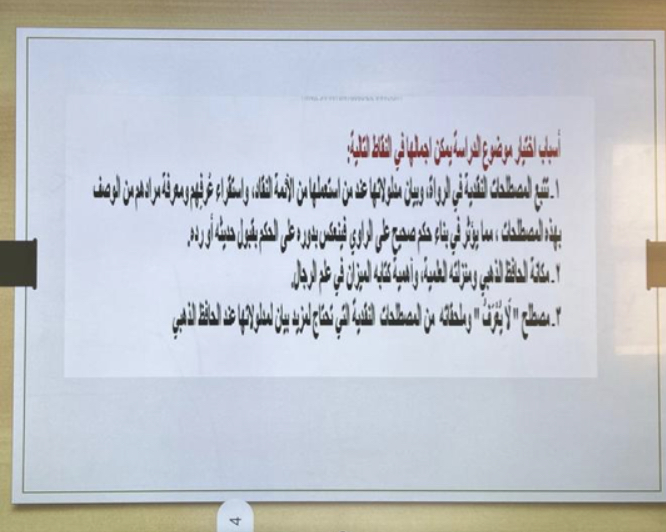 أسباب اختيار موضوع الدراسة يمكن اجمالها في النقاط التالية:
١ـ تتبع المصطلحات النقدية في الرواة، وبيان مدلولاتها عند من استعملها من الأئمة النقاد، واستقراء عُرفِهم ومعرفة مرادهم من الوصف
بهذه المصطلحات ، مما يؤثر في بناء حكم صحيح على الراوي فينعكس بدوره على الحكم بقبول حديثه أو رده.
٢ـ مكانة الحافظ الذهبي ومنزلته العلمية، وأهمية كتابه الميزان في علم الرجال.
٣ـ مصطلح " لَا يُعْرَفُ " وملحقاته من المصطلحات النقدية التي تحتاج لمزيد بيان لمدلولاتها عند الحافظ الذهبي
4